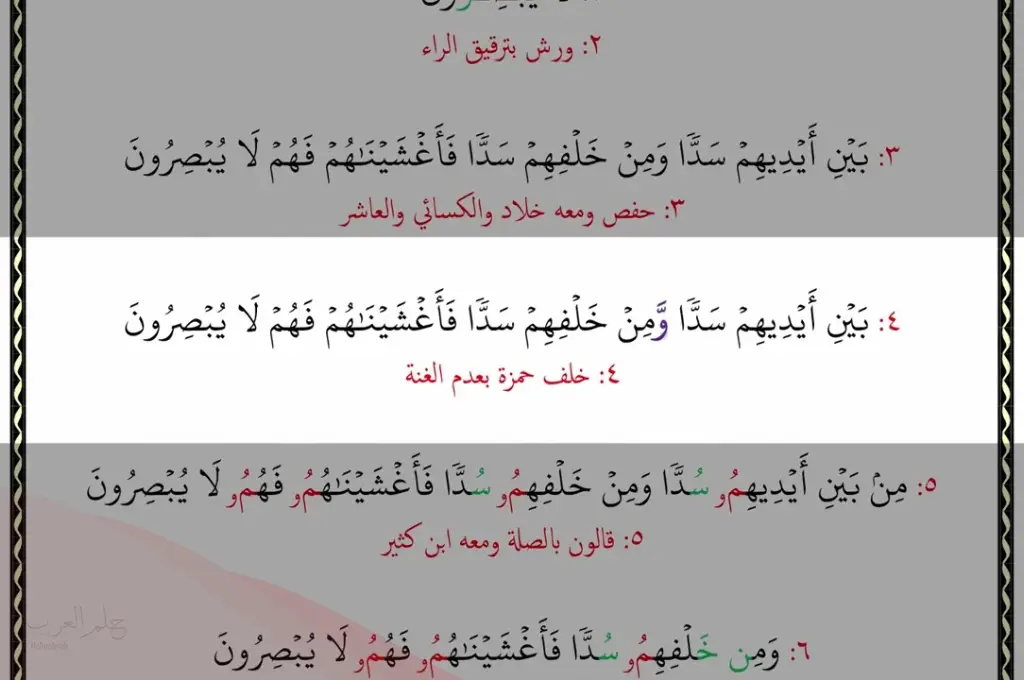 ٢: ورش بترقيق الراء
٣: بَيۡنِ أَيۡدِيهِمۡ سَدّٗا وَمِنۡ خَلۡفِهِمۡ سَدّٗا فَأَغۡشَيۡنَٰهُمۡ فَهُمۡ لَا يُبۡصِرُونَ
٣: حفص ومعه خلاد والكسائي والعاشر
٤: بَيۡنِ أَيۡدِيهِمۡ سَدّٗا وَّمِنۡ خَلۡفِهِمۡ سَدّٗا فَأَغۡشَيۡنَٰهُمۡ فَهُمۡ لَا يُبۡصِرُونَ
٤: خلف حمزة بعدم الغنة
٥: مِنۢ بَيۡنِ أَيۡدِيهِمُو سُدّٗا وَمِنۡ خَلۡفِهِمُو سُدّٗا فَأَغۡشَيۡنَٰهُمُو فَهُمُو لَا يُبۡصِرُونَ
٥: قالون بالصلة ومعه ابن كثير
٦: وَمِن خَلۡفِهِمُو سُدّٗا فَأَغۡشَيۡنَٰهُمُو فَهُمُو لَا يُبۡصِرُونَ
حلم العرب